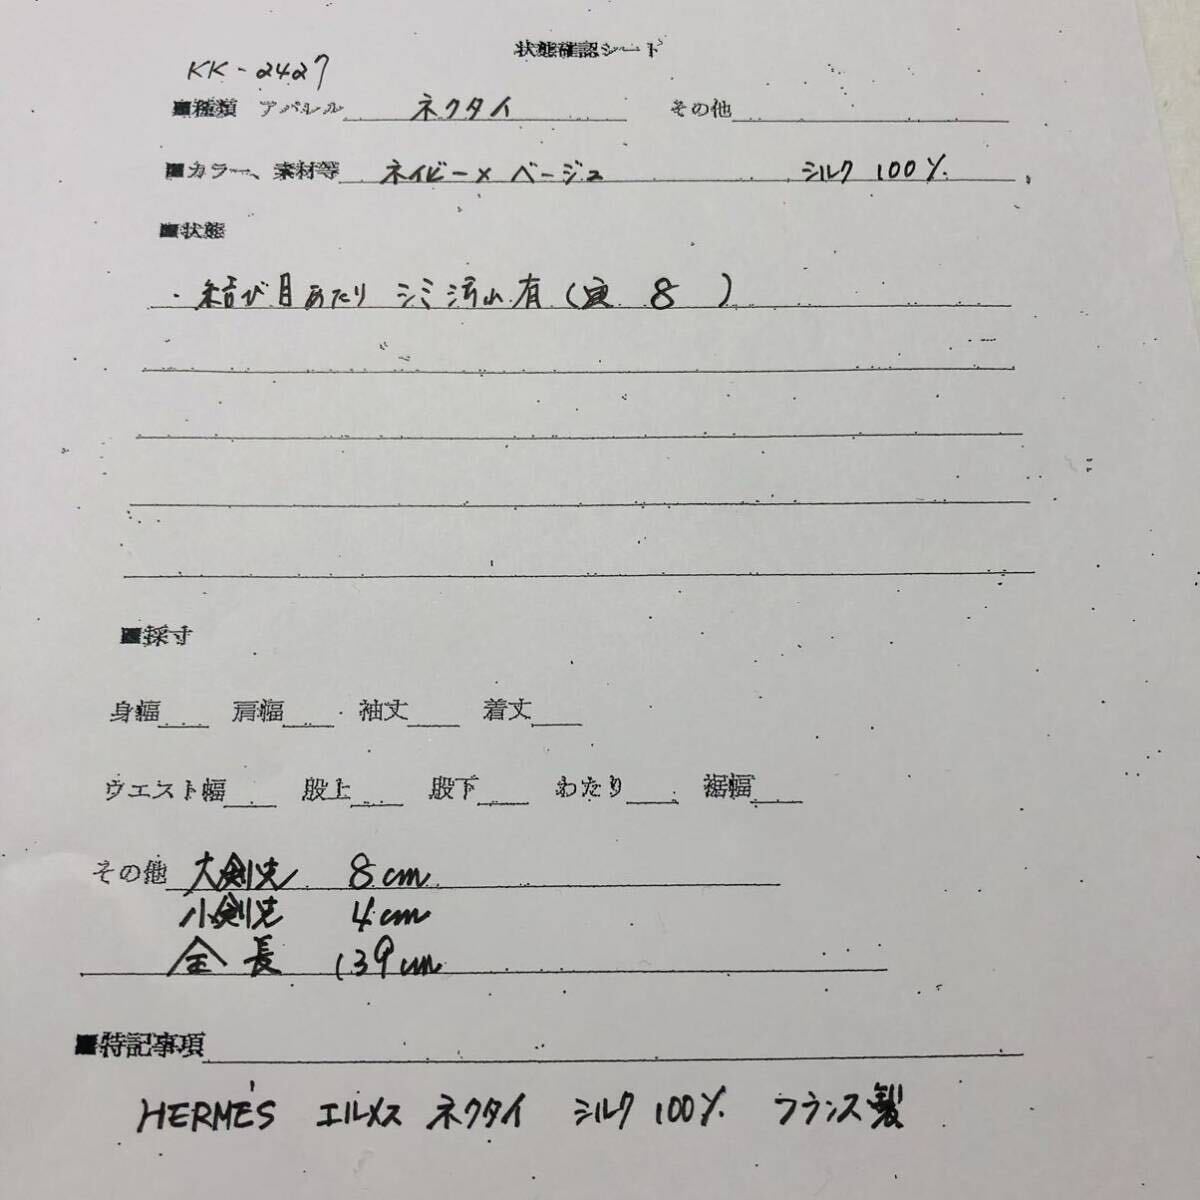 状態確認シート
KK-2427
■種類 アパレル ネクタイ その他
■カラー、素材等 ネイビー× ベージュ シルク 100%
■状態
・結び目あたり シミ汚れ有 ( 8 )
■採寸
身幅 肩幅 袖丈 着丈
ウエスト幅 股上 股下 わたり 裾幅
その他 大剣先 8cm
小剣先 4cm
全長 139cm
■特記事項
HERMÈS エルメス ネクタイ シルク 100% フランス製